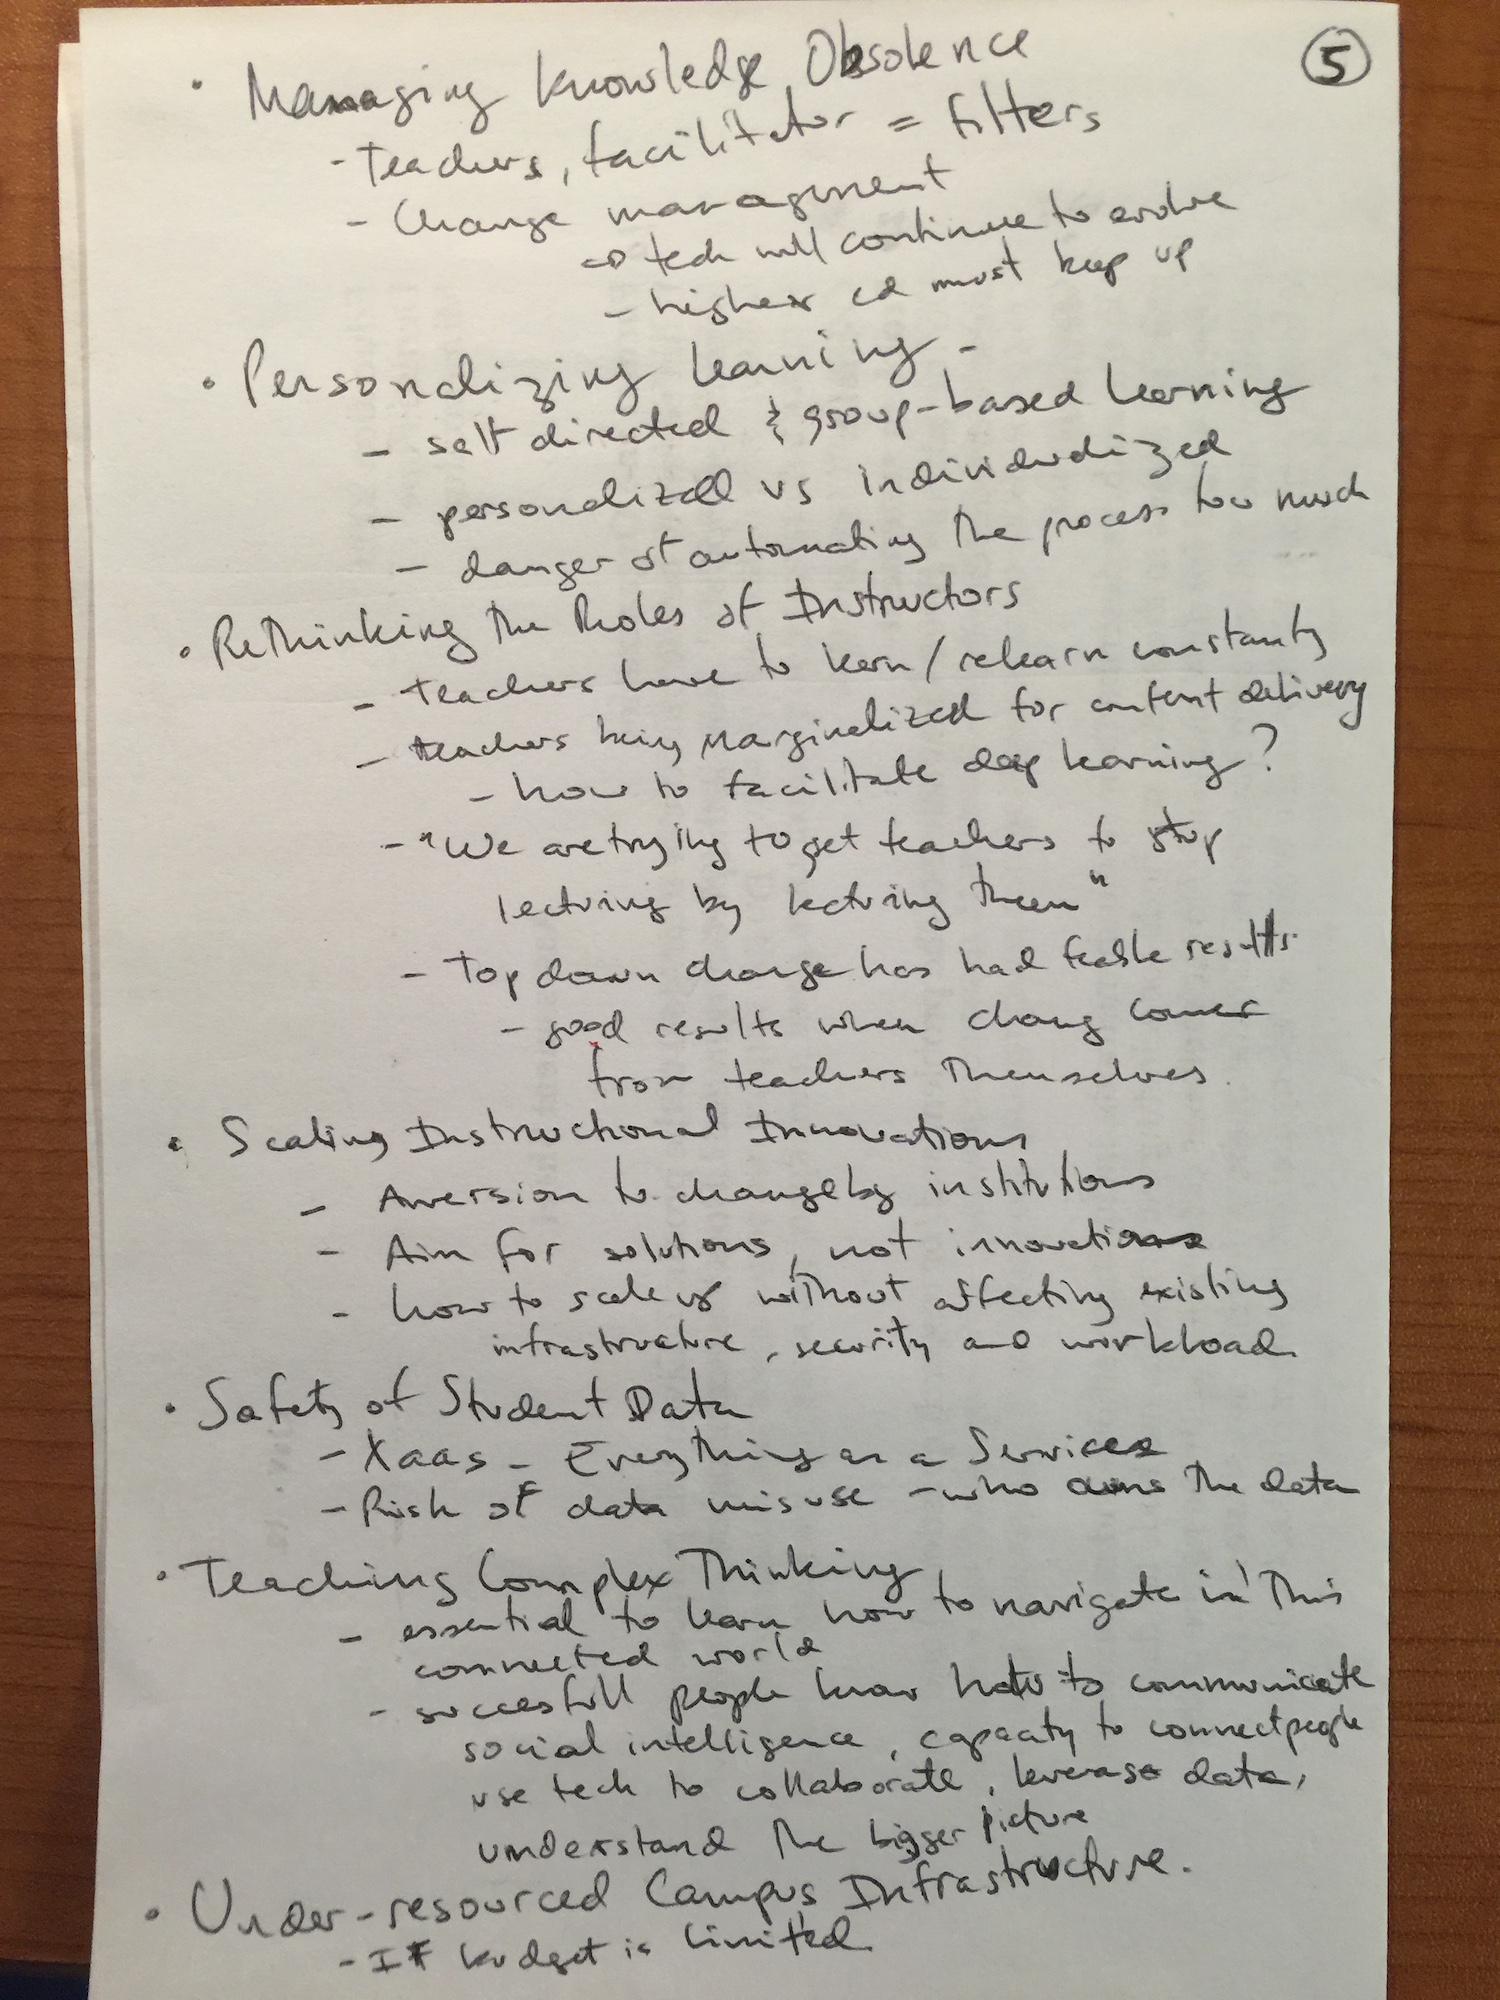 5
• Managing Knowledge Obsolence
- Teachers, facilitator = filters
- Change management
⇒ tech will continue to evolve
- higher ed must keep up
• Personalizing learning -
- self directed & group-based learning
- personalized vs individualized
- danger of automating the process too much
• Rethinking the Roles of Instructors
- teachers have to learn/relearn constantly
- teachers being marginalized for content delivery
- how to facilitate deep learning?
- "We are trying to get teachers to stop
lecturing by lecturing them"
- top down change has had feeble results.
- good results when change comes
from teachers themselves.
• Scaling Instructional Innovations
- Aversion to change by institutions
- Aim for solutions, not innovations
- how to scale up without affecting existing
infrastructure, security and workload.
• Safety of Student Data
- Xaas - Everything as a Service
- Risk of data misuse - who owns the data
• Teaching Complex Thinking
- essential to learn how to navigate in this
connected world
- succesfull people know how to communicate
social intelligence, capacity to connect people
use tech to collaborate, leverage data,
understand the bigger picture
• Under-resourced Campus Infrastructure.
- If budget is limited